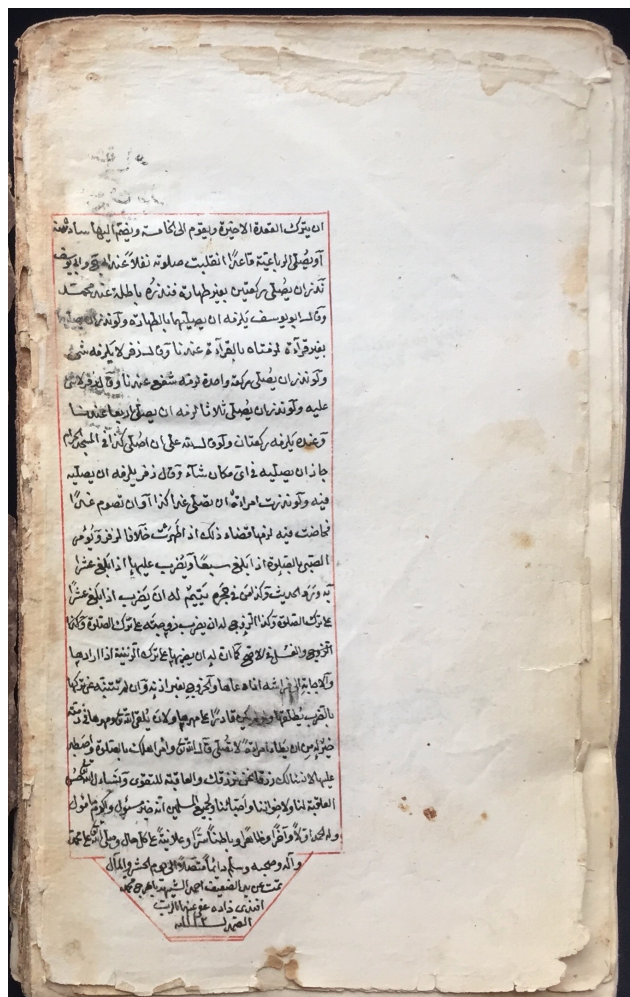 ان يترك القعدة الاخيرة ويقوم الى الخامسة ويضم اليها سادسة
او يصلى الرباعية قاعدا انقلبت صلوته نفلا عند ابى ح وابى يوسف
نذر ان يصلى ركعتين بغير طهارة فنذره باطلة عند محمد
وقال ابو يوسف يلزمه ان يصليها بالطهارة ولو نذر ان يصليها
بغير قرآءة لزمتاه بالقرآءة عندنا وقال زفر لا يلزمه شئ
ولو نذر ان يصلى ركعة واحدة لزمه شفع عندنا وقال زفر لا شئ
عليه ولو نذر ان يصلى ثلاثا لزمه ان يصلى اربعا عندنا
وعنده يلزمه ركعتان ولو قال لله على ان اصلى كذا فى المسجد الحرام
جاز ان يصليه فى اى مكان شآء وقال زفر يلزمه ان يصليه
فيه ولو نذرت امرأة ان تصلى غدا كذا او ان تصوم غدا
فحاضت فيه لزمها قضاء ذلك اذ اطهرت خلافا لزفر ويؤمر
الصبى بالصلوة اذ ابلغ سبعا ويضرب عليها اذ ابلغ عشرا
به ورد الحديث وكذا من فى حجره يتيم له ان يضرب اذ ابلغ عشرا
على ترك الصلوة وكذا الزوج له ان يضرب زوجته على ترك الصلوة وكذا
الخروج والغسل كان له ان يضربها على ترك الزينة اذا ارادها
والاجابة الى فراشه اذا دعاها والخروج بغير اذنه وان لم تنته عن تركها
بالضرب يطلقها ولو لم يكن قادرا على مهرها ولان يلقى الله تع ومهرها فى ذمته
خير له من ان يطأ امرأة لا تصلى قال الله تع وأمر اهلك بالصلوة واصطبر
عليها لا نسئلك رزقا نحن نرزقك والعاقبة للتقوى ونسأل الله حسن
العاقبة لنا ولاخواننا واحبائنا ولجميع المسلمين انه خير مسئول واكرم مأمول
وله الحمد اولا وآخرا وظاهرا وباطنا سرا وعلانية على كل حال وصلى الله على محمد
وآله وصحبه وسلم دائما متصلا الى يوم الحشر والمآل
تمت عن يد الضعيف احمد الشهير
افندى زاده عفى عنهما
الصمد